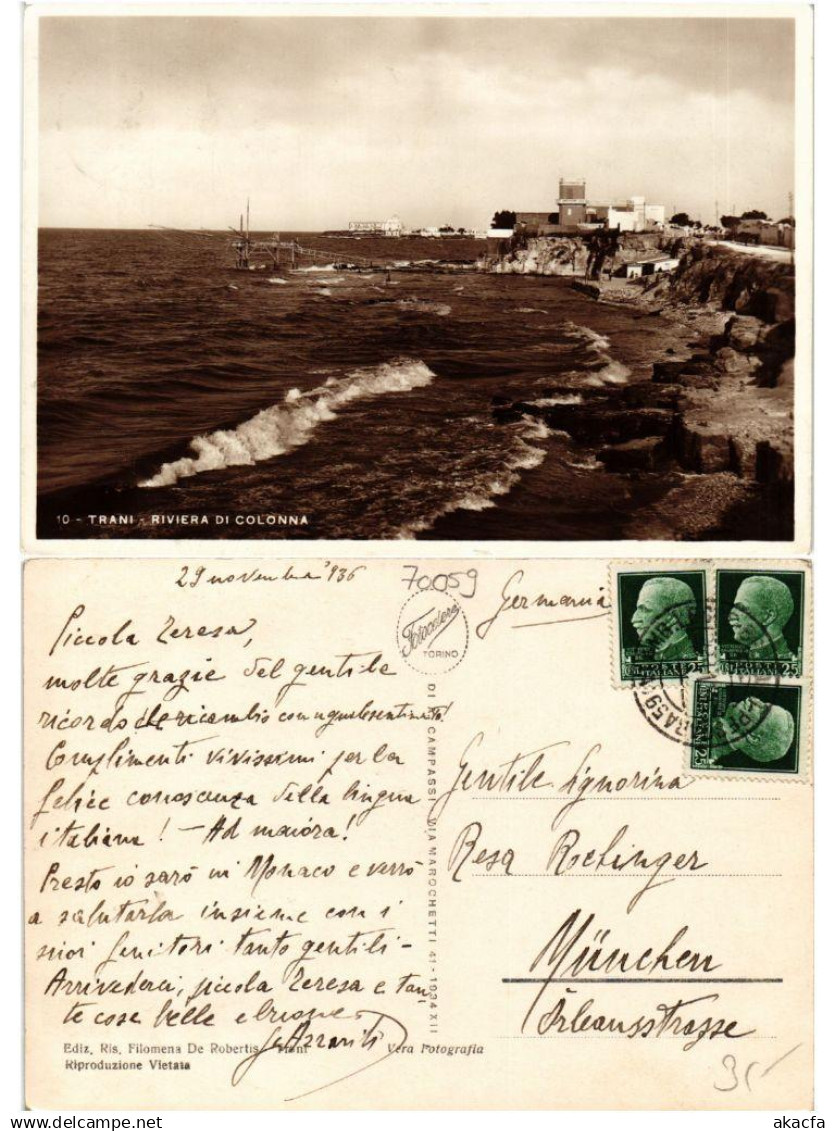 10 - TRANI - RIVIERA DI COLONNA
29 novembre '936
70059
Germania
Fotocelere
TORINO
Piccola Teresa,
molte grazie del gentile
ricordo che ricambio con uguale sentimento!
Complimenti vivissimi per la
felice conoscenza della lingua
italiana! - Ad maiora!
Presto io sarò in Monaco e verrò
a salutarla insieme con i
suoi genitori tanto gentili -
Arrivederci, piccola Teresa e tan
te cose belle e buone
DI A. CAMPASSI VIA MAROCHETTI 41 - 1934 XII
Gentile Signorina
Resa Roetinger
München
Orleansstrasse
Ediz. Ris. Filomena De Robertis - Trani
Vera Fotografia
Riproduzione Vietata
25
25
25
akacfa
www.delcampe.net
akacfa